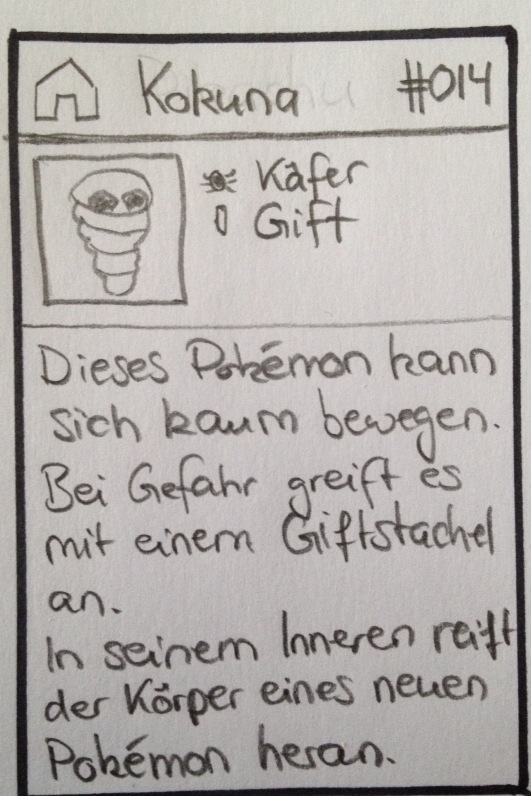 Kokuna #014
Käfer
Gift
Dieses Pokémon kann
sich kaum bewegen.
Bei Gefahr greift es
mit einem Giftstachel
an.
In seinem Inneren reift
der Körper eines neuen
Pokémon heran.